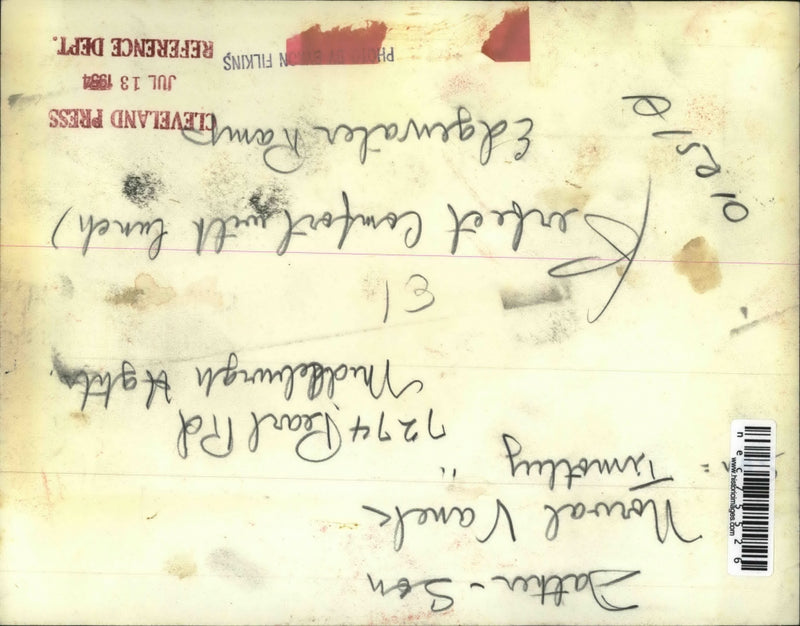 Father - Son
Norval Vanek
Timothy "
7274 Pearl Rd
Middleburgh Hghts
E1
(Perfect Comfort with lunch)
Edgewater Ramp
CLEVELAND PRESS
JUL 13 1954
REFERENCE DEPT.
PHOTO BY BYRON FILKINS
www.historicimages.com